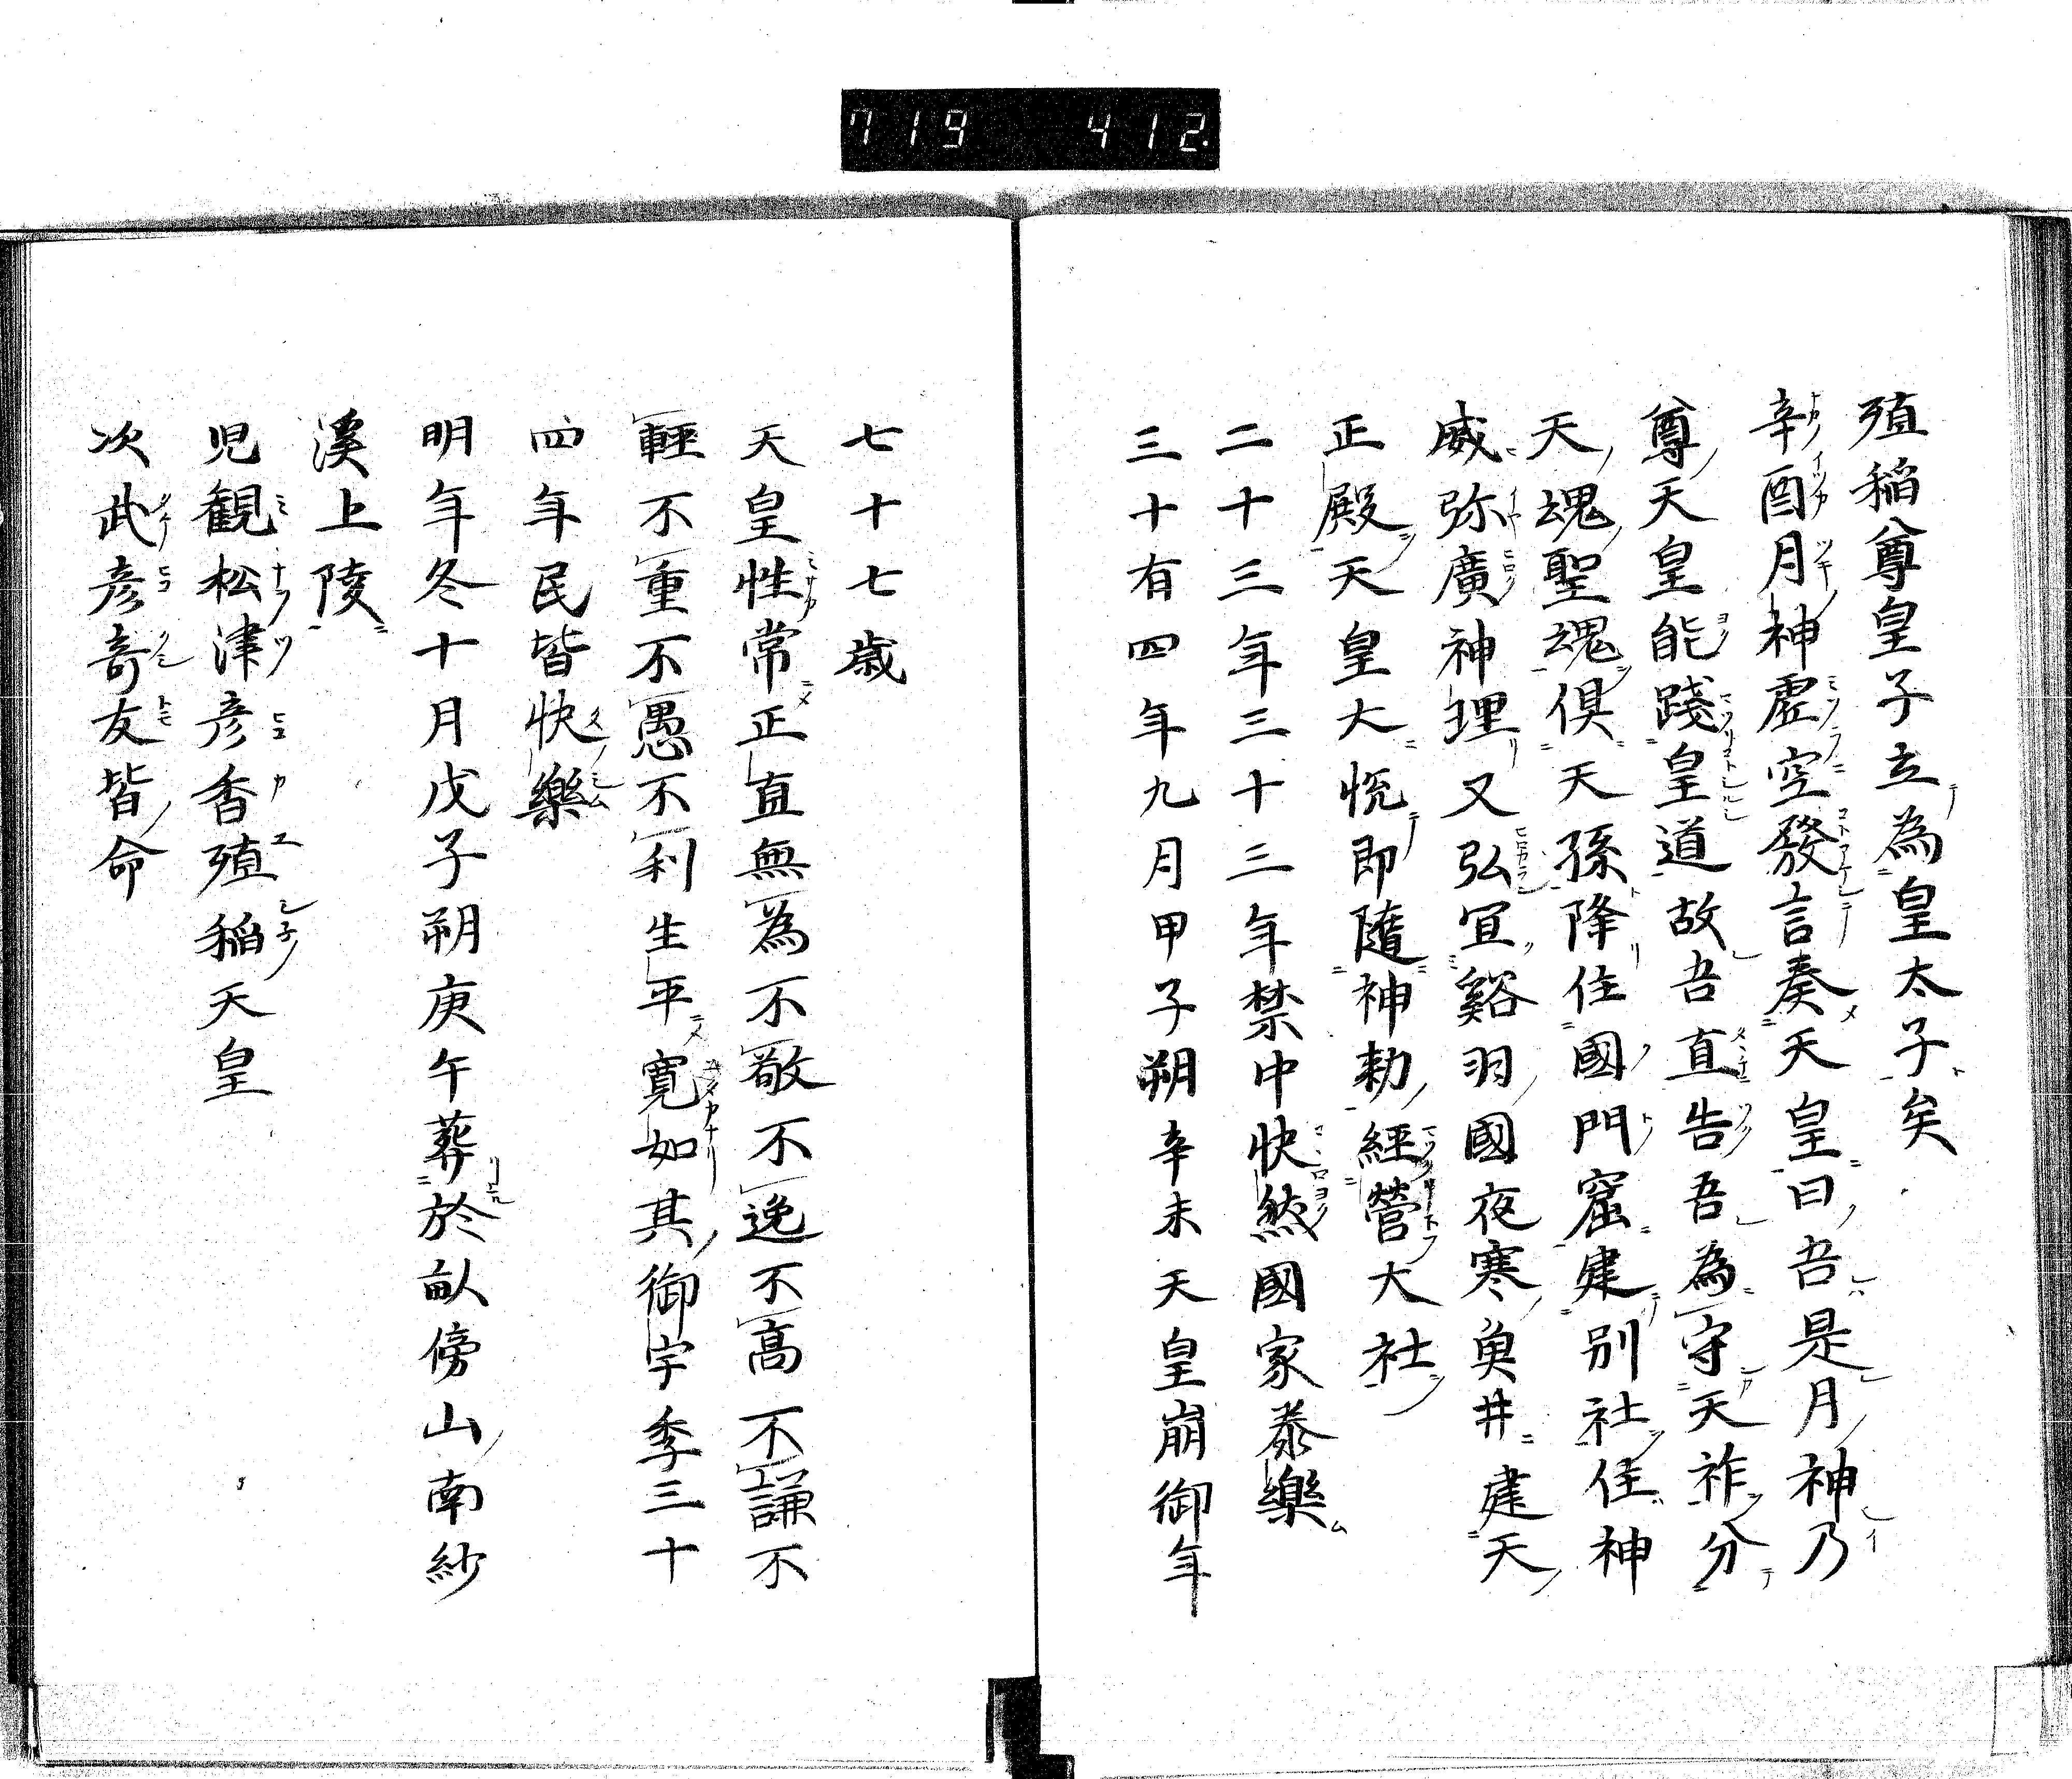 719 412.
殖稲尊皇子立為皇太子矣
辛酉月神虚空發言奏天皇曰吾是月神乃
尊天皇能踐皇道故吾直告吾為守天祚分
天魂聖魂俱天孫降住國門窟建別社住神
威弥廣神理又弘宣谿羽國夜寒奥井建天
正殿天皇大悦即隨神勅經營大社
二十三年三十三年禁中快然國家泰樂
三十有四年九月甲子朔辛未天皇崩御年
七十七歳
天皇性常正直無為不敬不逸不高不謙不
輕不重不愚不利生平寛如其御宇季三十
四年民皆快樂
明年冬十月戊子朔庚午葬於畝傍山南紗
溪上陵
児観松津彦香殖稲天皇
次武彦竒友皆命